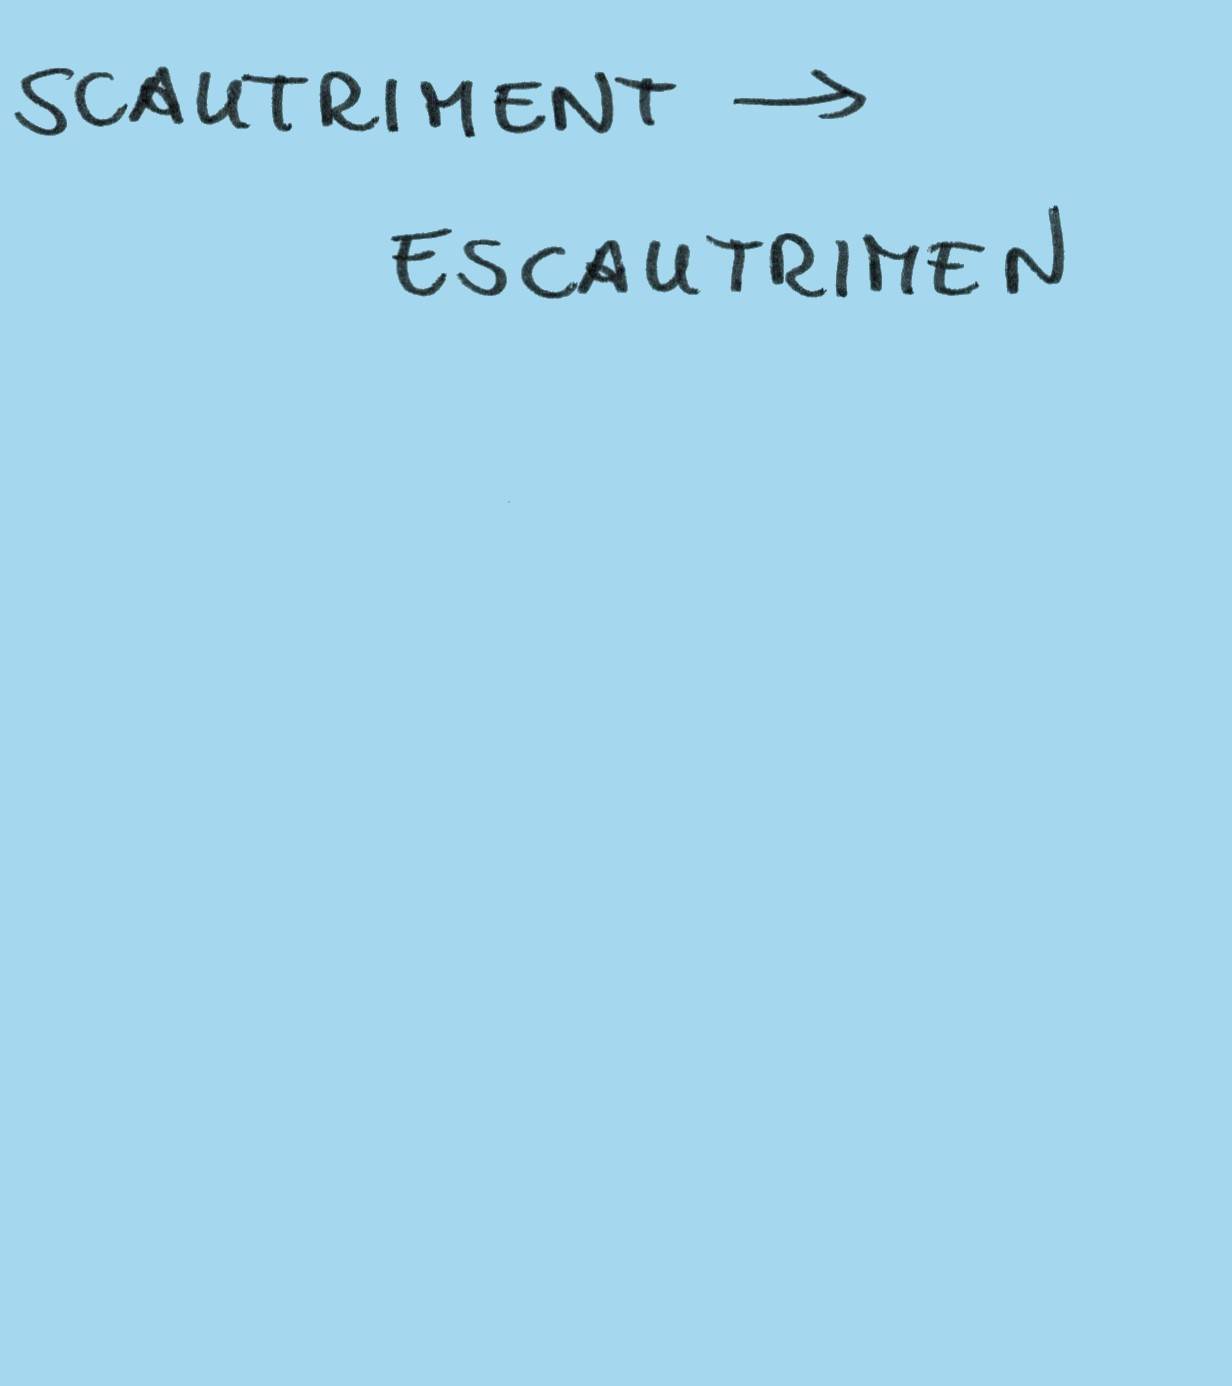 SCAUTRIMENT →
ESCAUTRIMEN